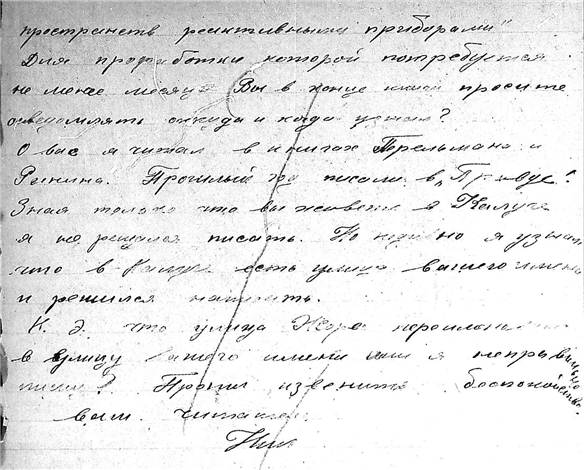 пространств реактивными приборами"
Для проработки которой потребуется
не менее месяца Вы в конце книги просите
осведомлять откуда и когда узнали?
О вас я читал в книгах Перельмана и
Рынина. Прошлый год писали в „Правде".
Зная только что вы живете в Калуге
я не решался писать. Но недавно я узнал
что в Калуге есть улица вашего имени
и решился написать.
К. Э. что улица Жореса переименована
в улицу вашего имени или я неправильно
пишу? Прошу извенить беспокойство
ваш читатель